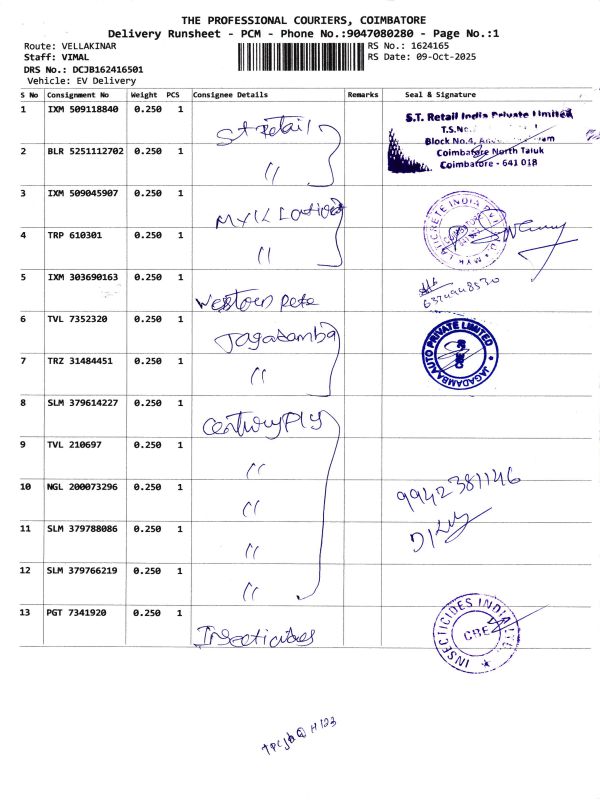 THE PROFESSIONAL COURIERS, COIMBATORE
Delivery Runsheet - PCM - Phone No.:9047080280 - Page No.:1
Route: VELLAKINAR
RS No.: 1624165
Staff: VIMAL
RS Date: 09-Oct-2025
DRS No.: DCJB162416501
Vehicle: EV Delivery
S No Consignment No Weight PCS Consignee Details Remarks Seal & Signature
1 IXM 509118840 0.250 1 St Retail
S.T. Retail India Private Limited
T.S.No.
Block No.4,
Coimbatore North Taluk
Coimbatore - 641 018
2 BLR 5251112702 0.250 1 "
3 IXM 509045907 0.250 1 MYK
4 TRP 610301 0.250 1 "
5 IXM 303690163 0.250 1 Western
6 TVL 7352320 0.250 1 Jagadamba
JAGADAMBA AUTO PRIVATE LIMITED
7 TRZ 31484451 0.250 1 "
8 SLM 379614227 0.250 1 Century Ply
9 TVL 210697 0.250 1 "
10 NGL 200073296 0.250 1 "
9942381146
11 SLM 379788086 0.250 1 "
12 SLM 379766219 0.250 1 "
13 PGT 7341920 0.250 1 Insecticides
INSECTICIDES INDIA LTD
CBE